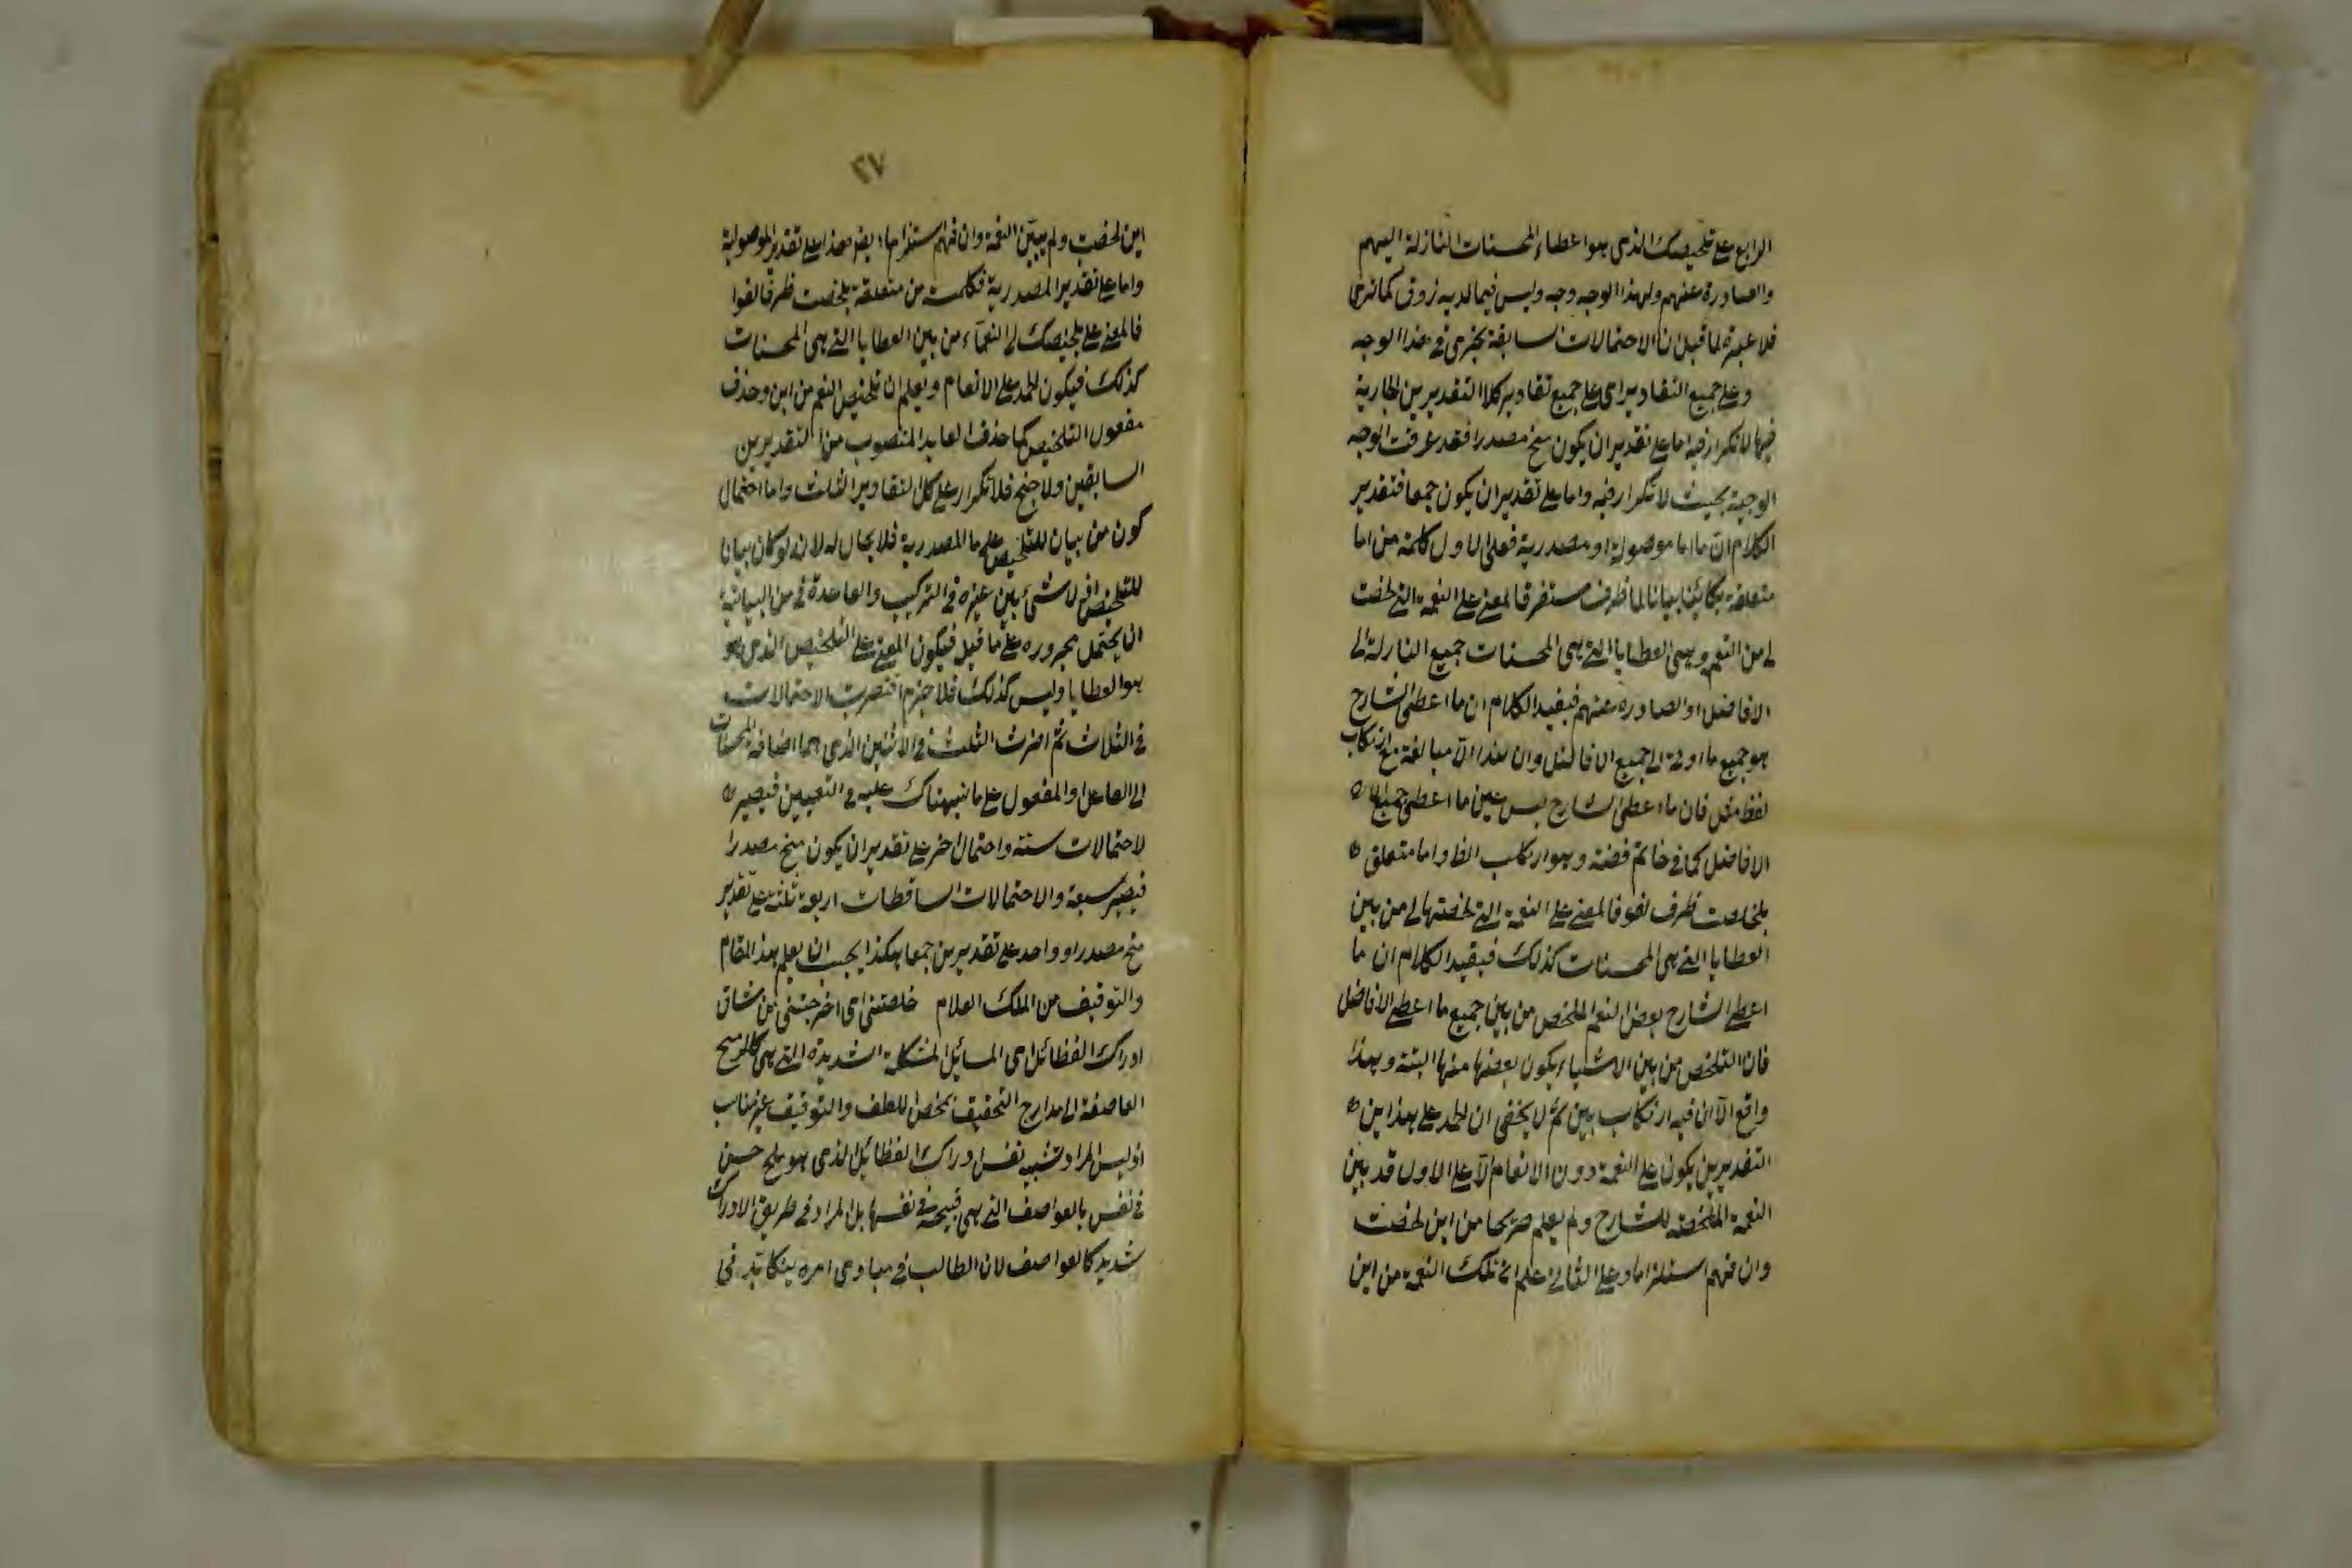 الرابع على تلخيصك الذى هو اعطاء المحسنات النازلة اليهم
والصادرة عنهم ولهذا الوجه وجه وليس فيما لديه زوق كما ترى
فلا عبرة لما قيل ان الاحتمالات سابقة يجرى فى هذا الوجه
وعلى جميع التقادير اى على جميع تقادير كلا التقديرين الجارية
فيها لا تكرار فيه اما على تقدير ان يكون منح مصدرا فقد عرفت الوجه
الوجيه بحيث لا تكرار فيه واما على تقدير ان يكون جمعا فتقدير
الكلام ان ما اما موصولة او مصدرية فعلى الاول كلمة من اما
متعلقة بكائنا بيانا لما ظرف مستقر فالمعنى على النعمة التى لخصت
لى من النعم وهى العطايا التى هى المحسنات جميع النازلة الى
الافاضل او الصادرة عنهم فيفيد الكلام ان ما اعطى الشارح
هو جميع ما اوتى الى جميع الافاضل وان هذا الا مبالغة مع ارتكاب
لفظ مثل فان ما اعطى الشارح ليس عين ما اعطى جميع
الافاضل كما فى خاتم فضة وهو ارتكاب الظ واما متعلق
بلخصت ظرف لغو فالمعنى على النعمة التى لخصتها لى من بين
العطايا التى هى المحسنات كذلك فيفيد الكلام ان ما
اعطى الشارح بعض النعم الملخص من بين جميع ما اعطى الافاضل
فان التلخص من بين الاشياء يكون بعضها منها البتة وهذا
واقع الا ان فيه ارتكاب بين ثم لا يخفى ان الحمد على هذاين
التقديرين يكون على النعمة دون الانعام الا على الاول قد بين
النعمة الملخصة للشارح ولم يعلم صريحا من اين لخصت
وان فهم استلزاما وعلى الثانى علم ان تلك النعمة من اين
٢٧
اين لخصت ولم يبين النعمة وان فهم استلزاما ايضا هذا على تقدير الموصولية
واما على تقدير المصدرية فكلمة من متعلقة بلخصت ظرفا لغوا
فالمعنى على تلخيصك لى النعماء من بين العطايا التى هى المحسنات
كذلك فيكون الحمد على الانعام ويعلم ان تلخيص النعم من اين وحذف
مفعول التلخيص كما حذف العايد المنصوب من التقديرين
السابقين ولا جنح فلا تكرار على كل التقادير الثلث واما احتمال
كون من بيان للتلخيص على ما المصدرية فلا مجال له لانه لو كان بيانا
للتلخيص لا شئ بين غيره فى التركيب والقاعدة فى من البيانية
ان يحتمل مجروره على ما قبل فيكون المعنى على التلخيص الذى هو
هو العطايا وليس كذلك فلا جزم اقتصرت الاحتمالات
فى الثلاث ثم اضرب الثلث فى الاثنين الذى هما اضافة المحسنات
الى الفاعل او المفعول على ما نبهناك عليه فى التعيين فيصير
لاحتمالات ستة واحتمال اخر على تقدير ان يكون منح مصدرا
فيصير سبعة والاحتمالات الساقطات اربعة ثلثة على تقدير
منح مصدرا وواحد على تقديرين جمعا هكذا يجب ان يعلم هذا المقام
والتوفيق من الملك العلام خلصتنى اى اخرجتنى من شاق
ادراك الفظائل اى المسائل المشكلة الشديدة التى هى كالريح
العاصفة الى مدارج التحقيق بمخض اللطف والتوفيق غير مناب
اذ ليس المراد تشبيه نفس ادراك الفظائل الذى هو ملح حسن
فى نفس بالعواصف التى هى قبيحة فى نفسها بل المراد فى طريق الادراك
شديد كالعواصف لان الطالب فى مبادى امره يتكابد فى